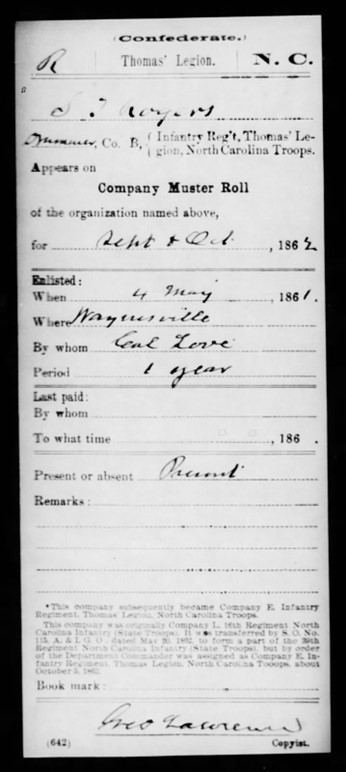 (Confederate.)
R Thomas' Legion. N. C.
S J Rogers
Drummer, Co. B, (Infantry Reg't, Thomas' Le-
gion, North Carolina Troops.
Appears on
Company Muster Roll
of the organization named above,
for Sept & Oct, 1862
Enlisted:
When 4 May, 1861.
Where Waynesville
By whom Col Love
Period 1 year
Last paid:
By whom
To what time , 186 .
Present or absent Present
Remarks:
*This company subsequently became Company E. Infantry
Regiment, Thomas' Legion, North Carolina Troops.
This company was originally Company L, 16th Regiment North
Carolina Infantry (State Troops). It was transferred by S. O. No.
115, A. & I. G. O., dated May 20, 1862, to form a part of the 39th
Regiment North Carolina Infantry (State Troops), but by order
of the Department Commander was assigned as Company E, In-
fantry Regiment, Thomas Legion, North Carolina Tooops, about
October 3, 1862.
Book mark:
Geo Lawrence
(642) Copyist.